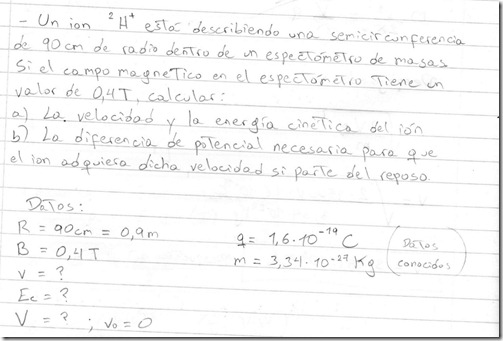 - Un ion ²H⁺ está describiendo una semicircunferencia
de 90 cm de radio dentro de un espectómetro de masas
Si el campo magnetico en el espectómetro tiene un
valor de 0,4T, calcular:
a) La velocidad y la energía cinética del ión
b) La diferencia de potencial necesaria para que
el ion adquiera dicha velocidad si parte del reposo.
Datos:
R = 90cm = 0,9m
B = 0,4T
v = ?
Ec = ?
V = ? ; v₀ = 0
q = 1,6·10⁻¹⁹ C
m = 3,34·10⁻²⁷ Kg
(Datos
conocidos)